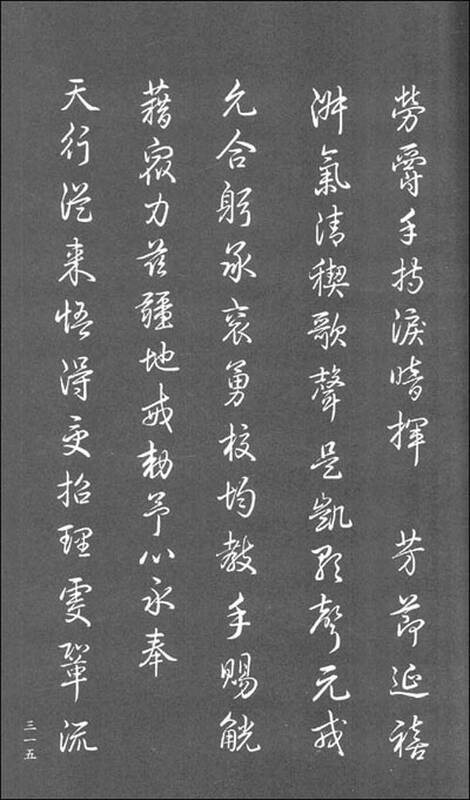 勞爵手持淚暗揮 芳節延禧
淑氣清禊歌聲是凱歌聲元戎
允合躬承袞勇校均教手賜觥
藉衆力茲疆地敕予心永奉
天行從來悟得招理鞏流
三一五